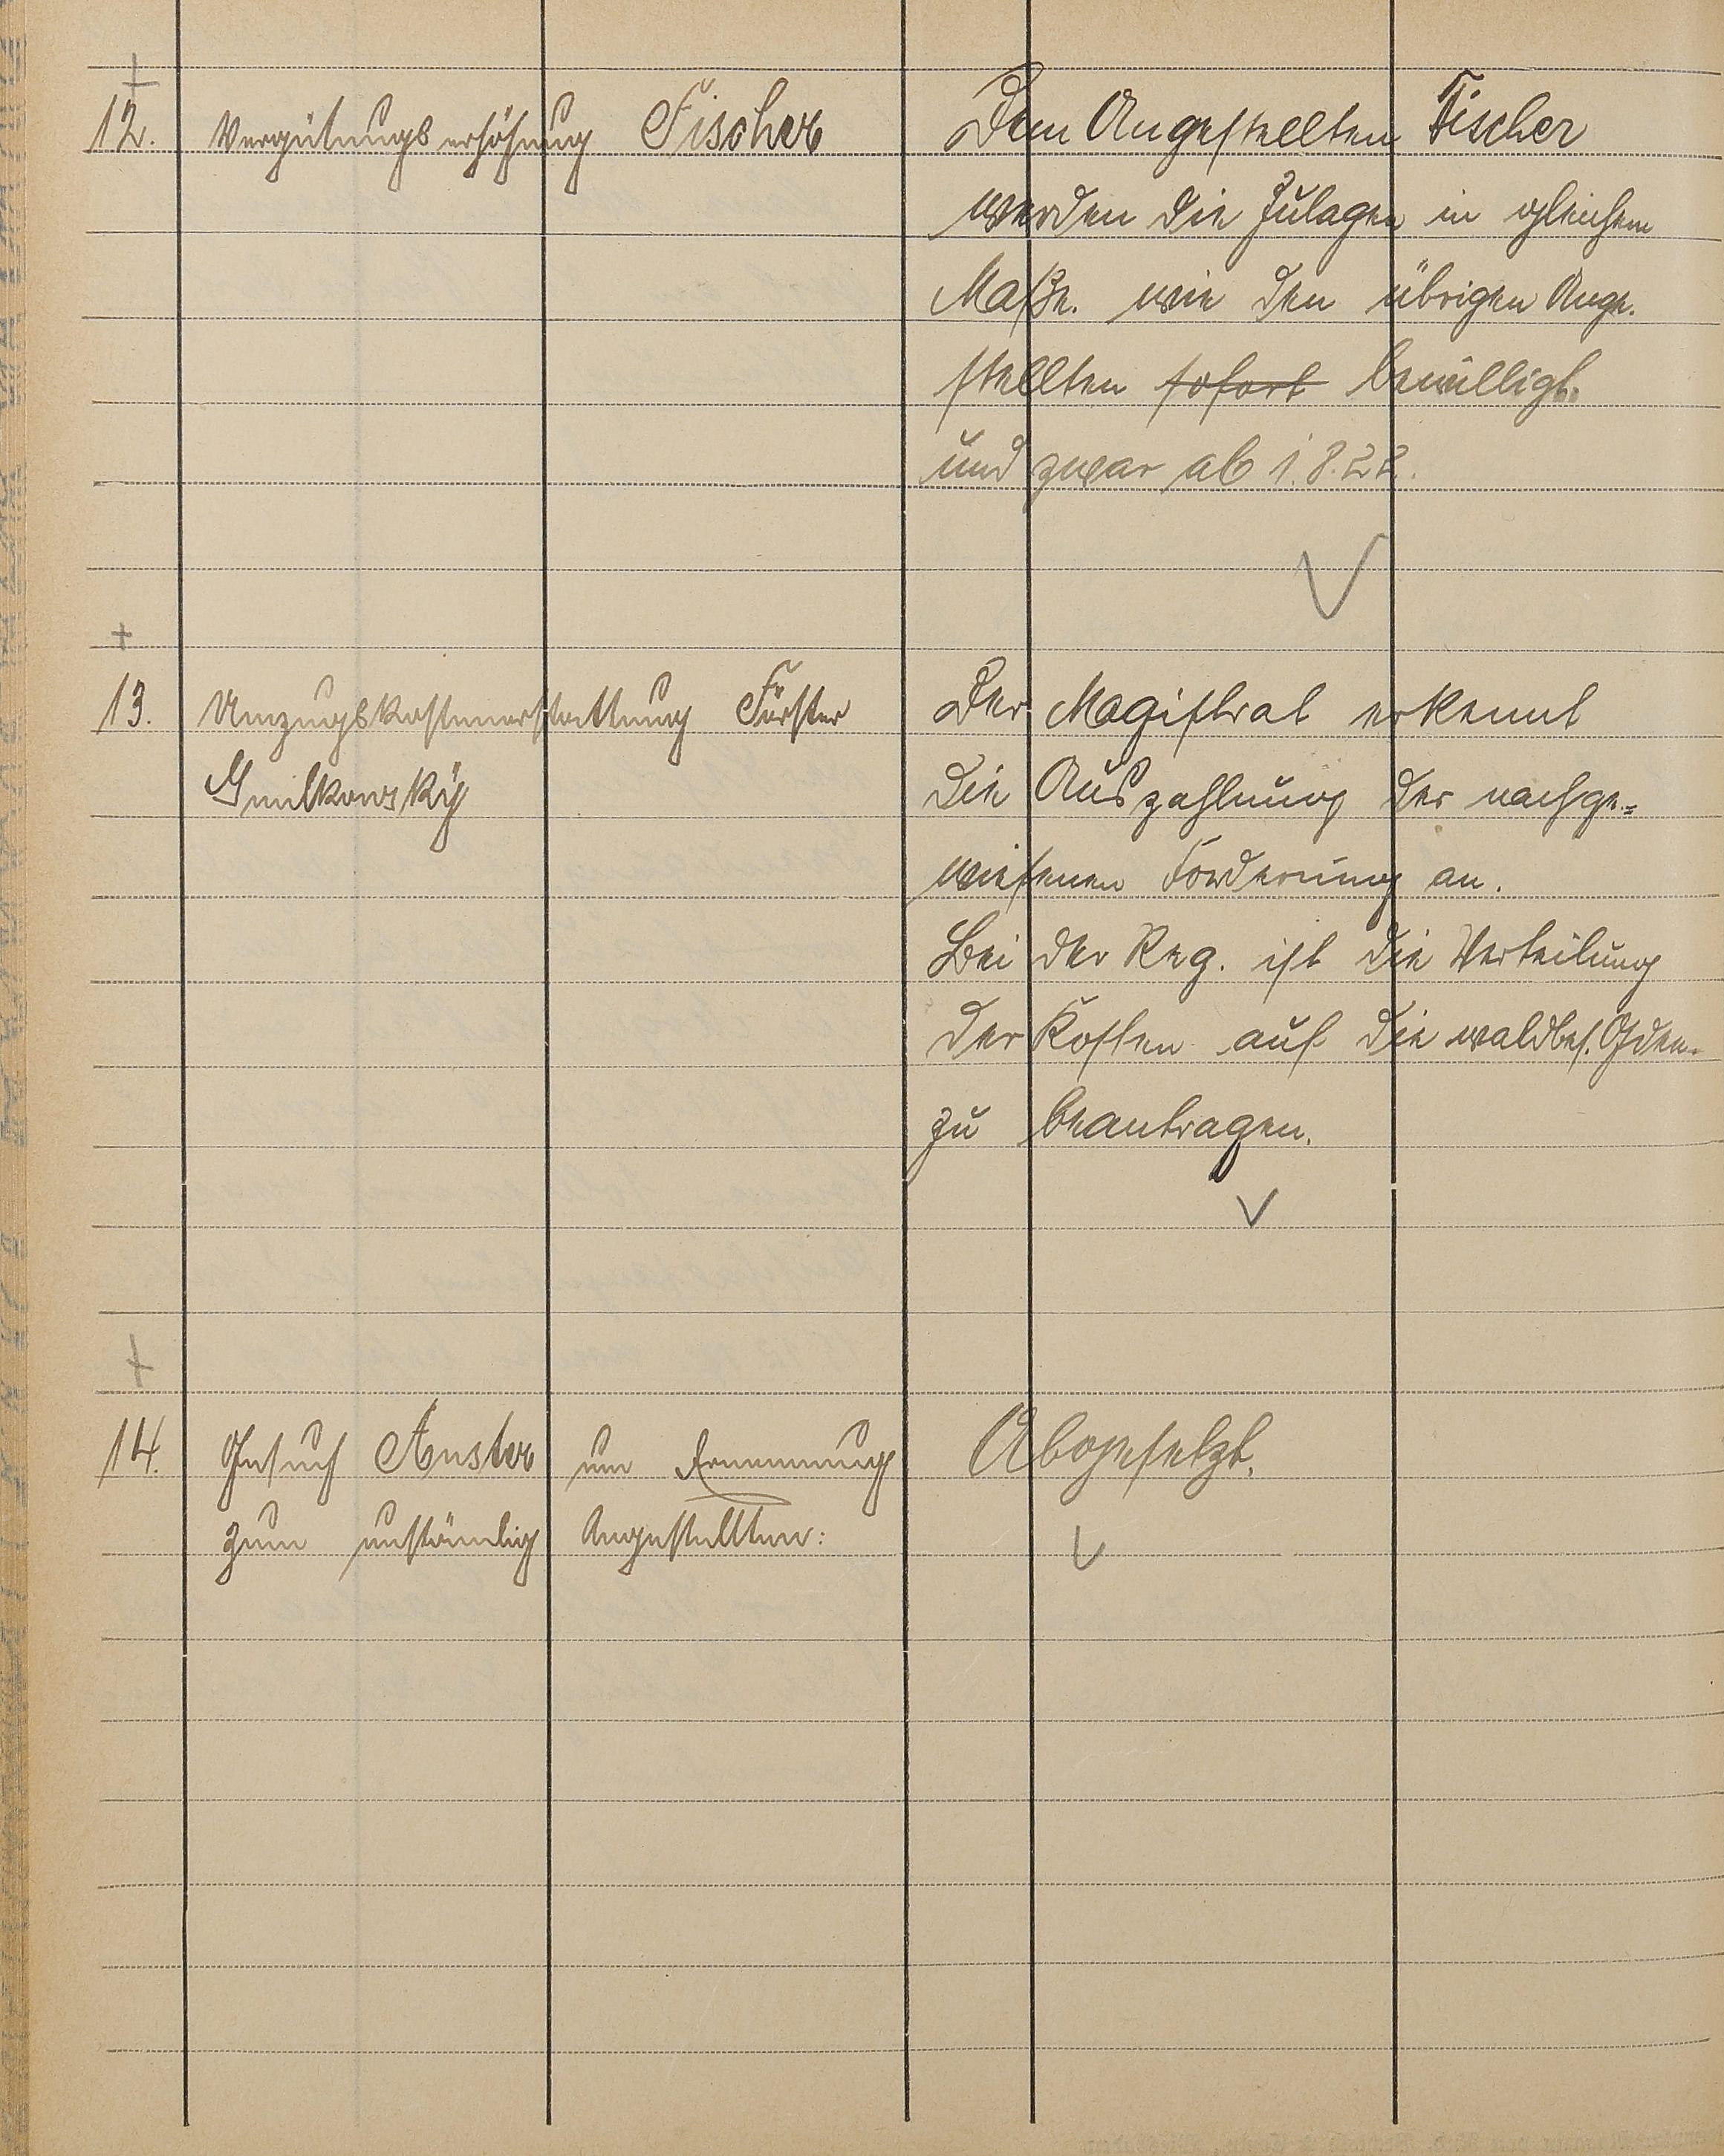 12. Vergütungserhöhung Fischer
Dem Angestellten Fischer
werden die Zulagen in gleichem
Maße. wie den übrigen Ange-
stellten sofort bewilligt.
und zwar ab 1.8.22.
13. Umzugskostenerstattung Förster
Gmilkowsky
Der Magistrat erkennt
die Auszahlung der nachge=
wiesenen Forderung an.
Bei der Reg. ist die Verteilung
der Kosten auf die waldbes. Gden.
zu beantragen.
14. Gesuch Anster um Ernennung
zum unständig Angestellten:
Abgesetzt.